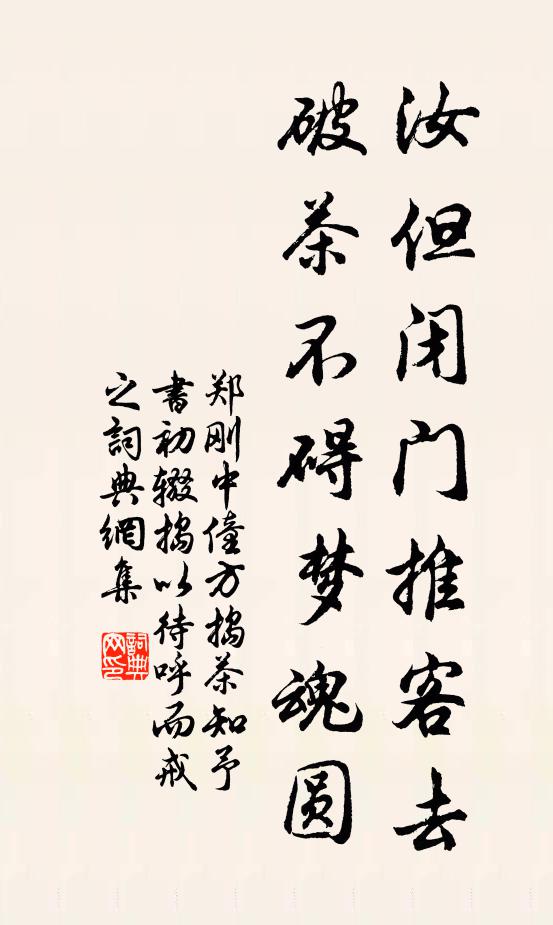 汝但闭门推客去
破茶不碍梦魂圆
郑刚中僮方捣茶知予
书初辍捣以待呼而戒
之词典網集
詞典网印